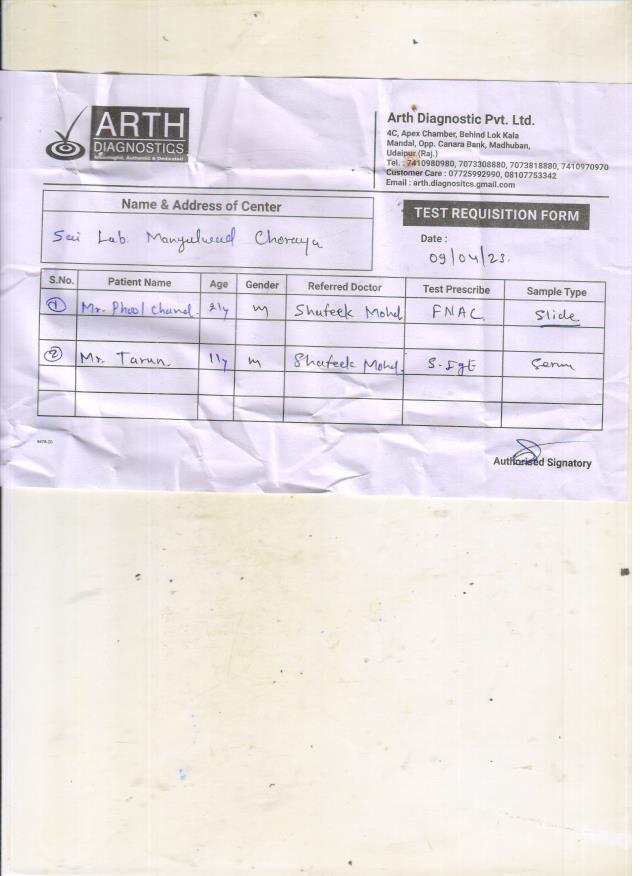 ARTH
DIAGNOSTICS
Meaningful, Authentic & Dedicated
Arth Diagnostic Pvt. Ltd.
4C, Apex Chamber, Behind Lok Kala
Mandal, Opp. Canara Bank, Madhuban,
Udaipur (Raj.)
Tel. : 7410980980, 7073308880, 7073818880, 7410970970
Customer Care : 07725992990, 08107753342
Email : arth.diagnositcs.gmail.com
Name & Address of Center
Sai Lab. Mangalwad Choraya
TEST REQUISITION FORM
Date :
09/04/23.
S.No. Patient Name Age Gender Referred Doctor Test Prescribe Sample Type
1 Mr. Phool Chand. 21y M Shafeek Mohd FNAC. Slide
2 Mr. Tarun. 11y M Shafeek Mohd. S.IgE Serum
9478-20
Authorised Signatory